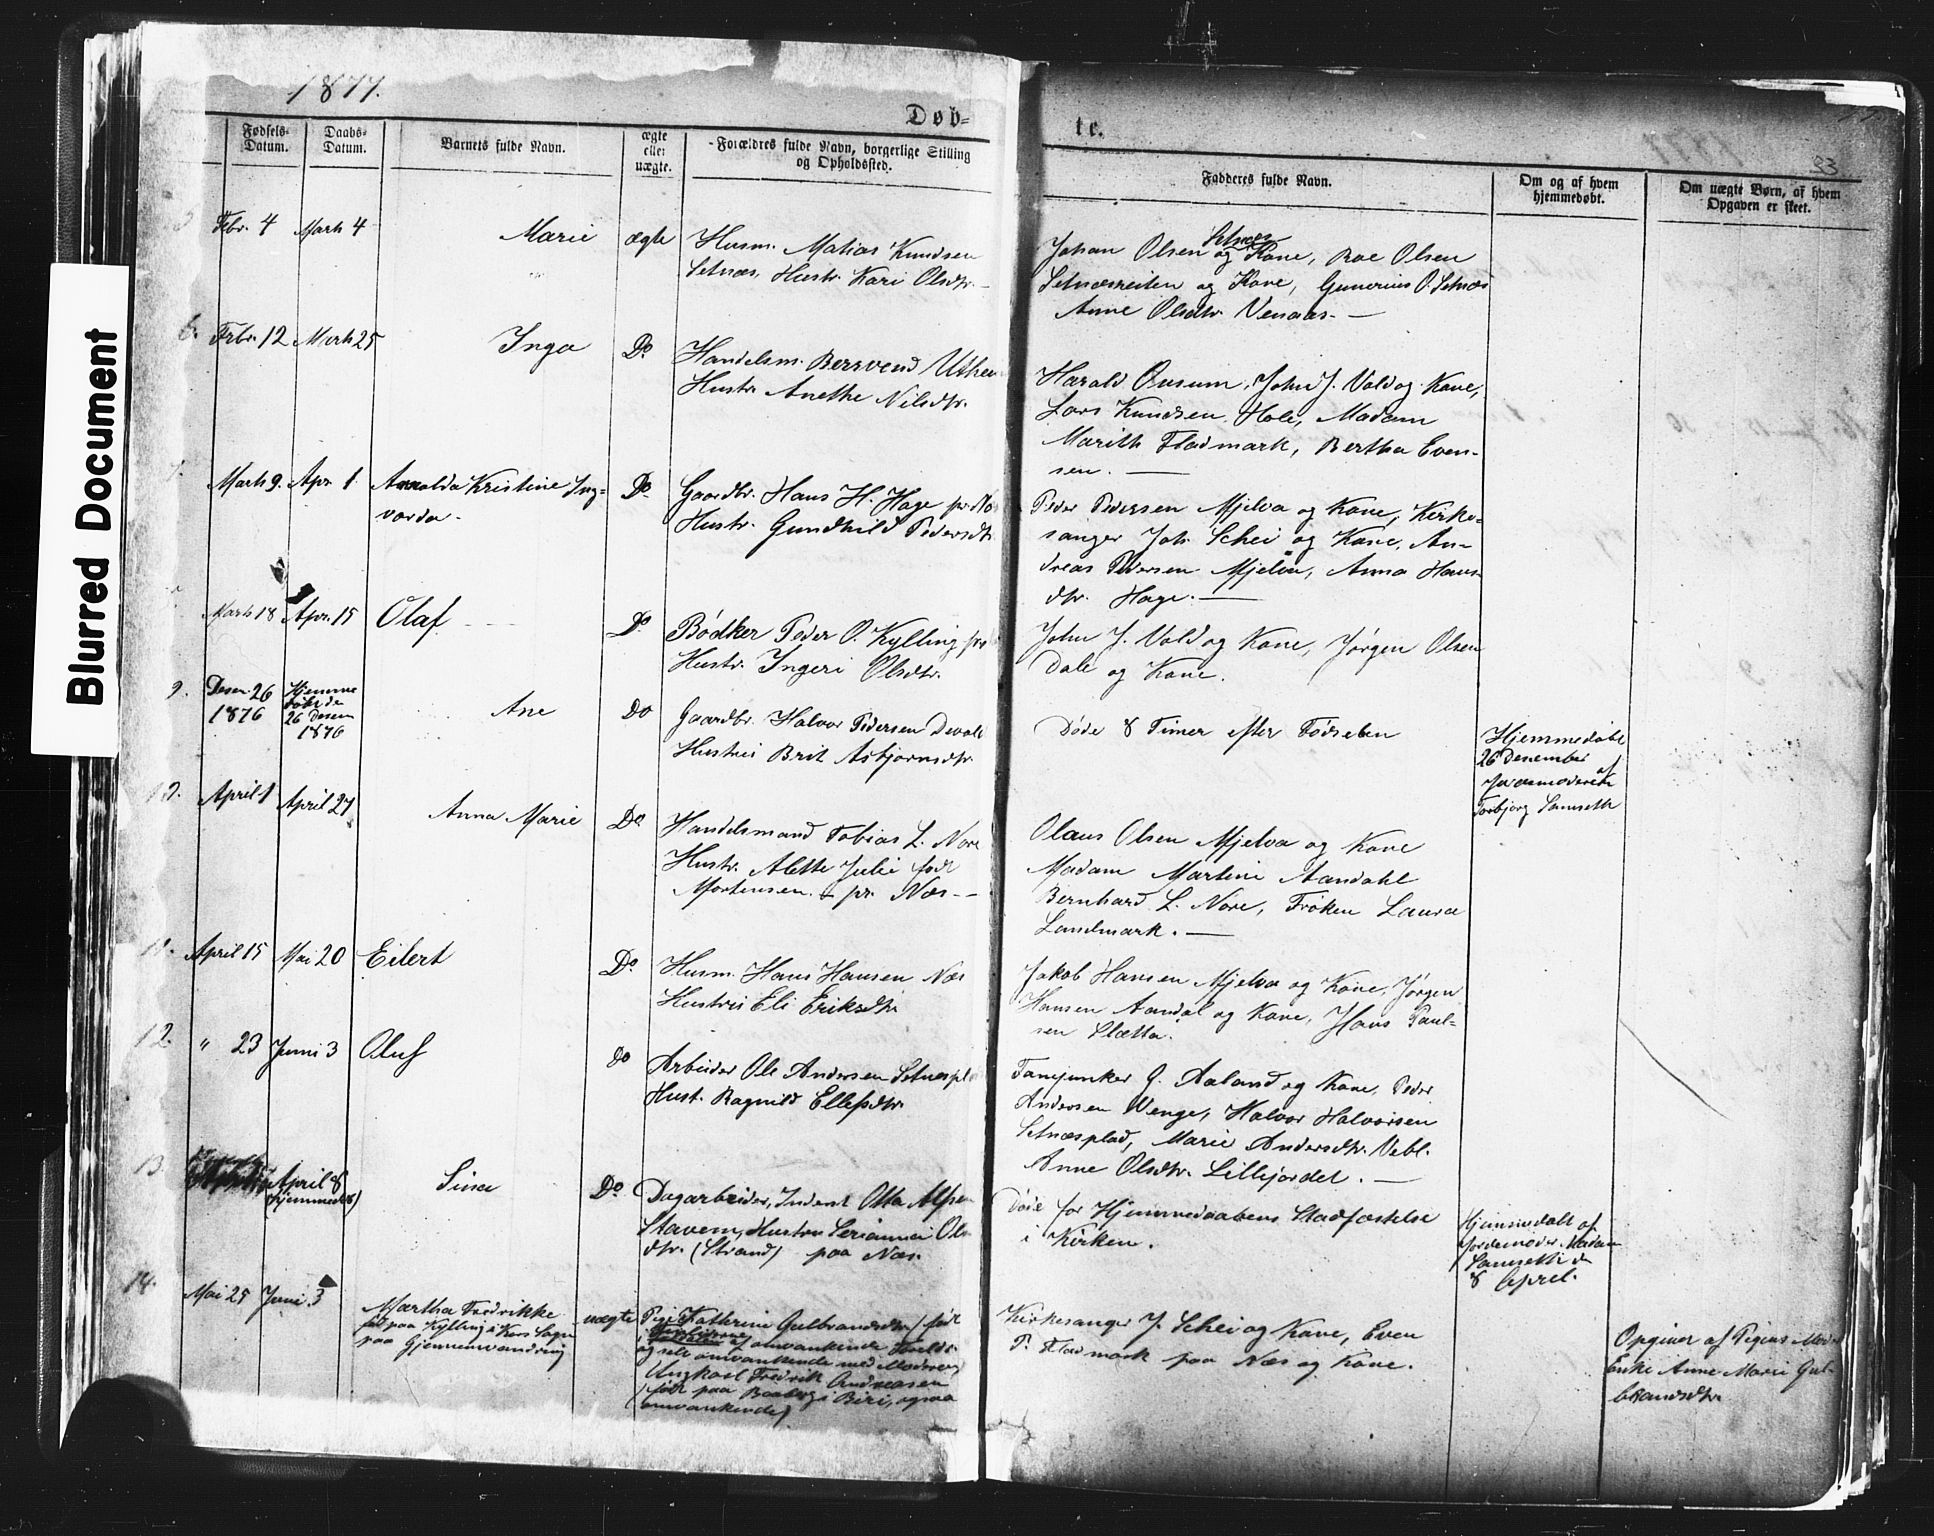 Blurred Document
1877.
Døb-
te.
23
Fødsels-
Datum.
Daabs-
Datum.
Barnets fulde Navn.
ægte
eller
uægte.
Forældres fulde Navn, borgerlige Stilling
og Opholdssted.
Fadderes fulde Navn.
Om og af hvem
hjemmedøbt.
Om uægte Børn, af hvem
Opgaven er skeet.
Febr. 4 Marts 4 Marie ægte
Husm. Matias Knudsen
Setnæs, Hustr. Kari Olsdtr. -
Setnæs
Johan Olsen og Kone, Roe Olsen
Setnæsreiten og Kone, Gunerius O. Setnæs
Anne Olsdtr. Venaas. -
6. Febr. 12 Marts 25 Inga Do
Handelsm. Berrvend
Hustr. Anethe Nilsdtr.
Harald Onsum, John J. Vold og Kone,
Lars Knudsen Hole, Madam
Marith Fladmark, Bertha Even-
sen. -
7. Marts 9. Apr. 1. Arnolda Kristine Ing-
varda. Do
Gaardbr. Hans H. Hage
Hustr. Gundhild Pedersdtr.
Peder Pedersen Mjelva og Kone, Kirke-
sanger Joh. Schei og Kone, An-
dreas Pedersen Mjelva, Anna Hans-
dtr. Hage. -
Marts 18 Apr. 15 Olaf Do
Bødker Peder O. Kylling
Hustr. Ingeri Olsdtr.
John J. Vold og Kone, Jørgen Olsen
Dale og Kone.
9. Desem. 26
1876
Hjemme
døbt de
26 Desem
1876
Ane Do
Gaardbr. Halvor Pedersen Devold
Hustru Brit Asbjørnsdtr.
Døde 8 Timer efter Fødselen
Hjemmedøbt
26 Desember
af
Jordemoderen
Torbjørg Samseth
10. April 1 April 27 Anna Marie Do
Handelsmand Tobias L. Nore
Hustr. Alette Julie født
Mortensen. - pr. Næs -
Olaus Olsen Mjelva og Kone
Madam Martini Aandahl
Bernhard L. Nore, Frøken Laura
Landmark. -
11. April 15 Mai 20 Eilert Do
Husm. Hans Hansen Næs
Hustru Eli Eriksdtr
Jakob Hansen Mjelva og Kone, Jørgen
Hansen Aandal og Kone, Hans Paul-
sen Slætta.
12. " 23 Juni 3 Oluf Do
Arbeider Ole Andersen Setnæspl
Hust. Ragnild Ellefsdtr.
Fanejunker G. Aaland og Kone, Peder
Andersen Wenge, Halvor Halvorsen
Setnæsplad, Marie Andersdtr. Vebl.
Anne Olsdtr. Lillejordet. -
13. April 8
(hjemmedøbt) Sina Do
Dagarbeider, Inderst Otto
Stavem, Hustru Serianna Ols
dtr. (Strand) paa Næs.
Døde før Hjemmedaabens Stadfæstelse
i Kirken.
Hjemmedøbt af
Jordemoder Madam
Samseth d.
8 April.
14. Mai 25 Juni 3
Martha Fredrikke
født paa Kylling i Kors Sogn
paa Gjennemvandring
uægte
Pige Kathrine Gulbrandsdtr (født
omvankende Foreldre
og selv omvankende med Moderen)
Ungkarl Fredrik Andreasen
(født paa Baaberg i Biri, ogsaa
omvankende)
Kirkesanger J. Schei og Kone, Even
P. Fladmark paa Næs og Kone.
Opgiver af Pigens Moder
Enke Anne Marie Gul-
brandsdtr